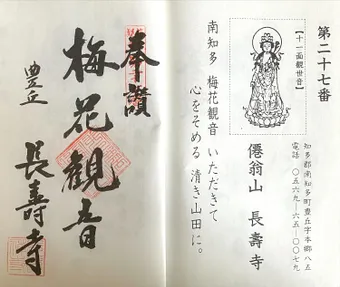 第二十七番
【十一面觀世音】
知多郡南知多町豊丘字本郷八五
電話 〇五六九―六五―〇〇七九
僊翁山 長壽寺
南知多 梅花観音 いただきて
心をそめる 清き山田に。
奉讃
梅花観音
豊丘
長壽寺